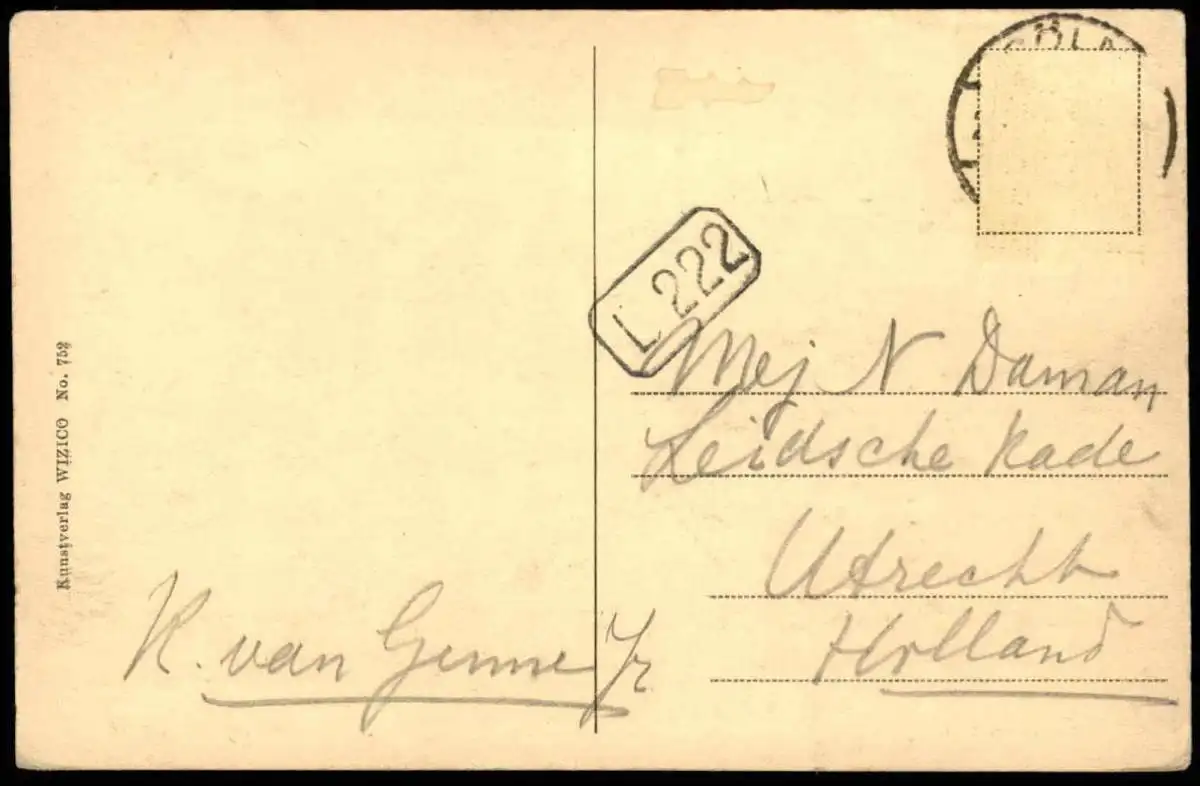 CÖLN
L 222
Mej N. Daman
Leidsche kade
Utrecht
Holland
K. van Genne Jr
Kunstverlag WIZICO No. 752